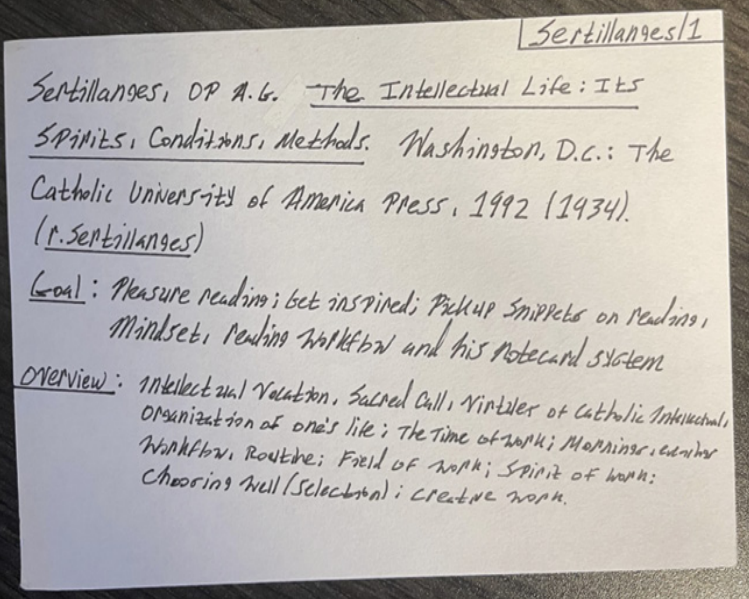 Sertillanges/1
Sertillanges, OP A.G. The Intellectual Life: Its
Spirits, Conditions, Methods. Washington, D.C.: The
Catholic University of America Press, 1992 (1934).
(r.sertillanges)
Goal: Pleasure reading; Get inspired; Pickup snippets on reading,
Mindset, reading workflow and his notecard system
Overview: Intellectual Vocation, Sacred Call, Virtues of Catholic Intellectual,
Organization of one's life; The Time of work; Mornings, evenings
Workflow, Routine; Field of work; Spirit of work;
Choosing well (selection); Creative work.